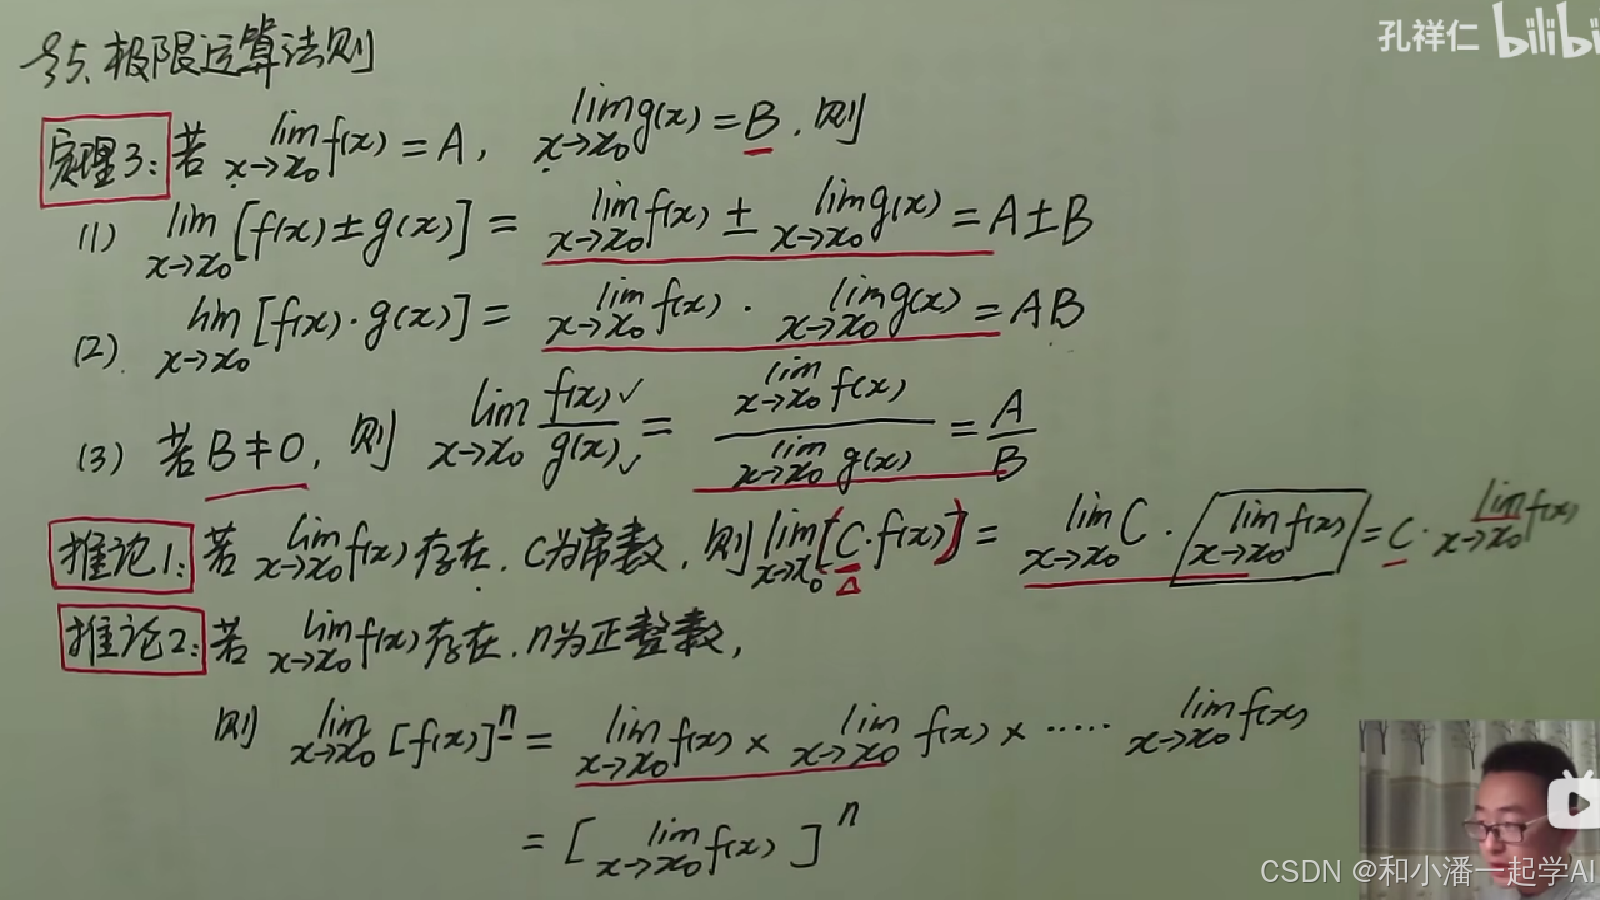 孔祥仁 bilibili
§5. 极限运算法则
定理3: 若 lim x→x₀ f(x) = A, lim x→x₀ g(x) = B. 则
(1) lim x→x₀ [f(x) ± g(x)] = lim x→x₀ f(x) ± lim x→x₀ g(x) = A±B
(2). lim x→x₀ [f(x)·g(x)] = lim x→x₀ f(x) · lim x→x₀ g(x) = AB
(3) 若 B≠0, 则 lim x→x₀ f(x)✓/g(x)✓ = lim x→x₀ f(x) / lim x→x₀ g(x) = A/B
推论1: 若 lim x→x₀ f(x) 存在. C为常数. 则 lim x→x₀ [C·f(x)] = lim x→x₀ C · lim x→x₀ f(x) = C· lim x→x₀ f(x)
推论2: 若 lim x→x₀ f(x) 存在. n为正整数,
则 lim x→x₀ [f(x)]ⁿ = lim x→x₀ f(x) × lim x→x₀ f(x) × ····· lim x→x₀ f(x)
= [ lim x→x₀ f(x) ]ⁿ
CSDN @和小潘一起学AI